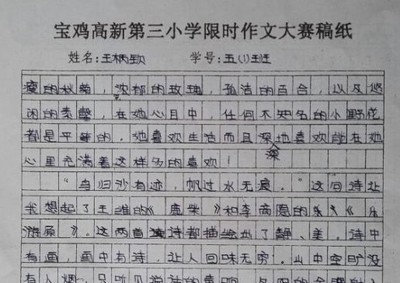 宝鸡高新第三小学限时作文大赛稿纸
姓名:王楠颖 学号:五(1)班
瘦的秋菊，浓郁的玫瑰，孤洁的百合，以及悠
闲的素馨，在她心目中，任何不知名的小野花
都是平等的。她喜欢生活而且深深地喜欢能在她
心里充满着这样多的喜欢！
“鸟归沙有迹，帆过水无痕。”这句诗让
我想起了王维的《鹿柴》和李商隐的《
》。这两首诗都描绘出了静、美。诗中
有画，画中有诗，让人回味无穷。山中空旷没
有人烟，只能见